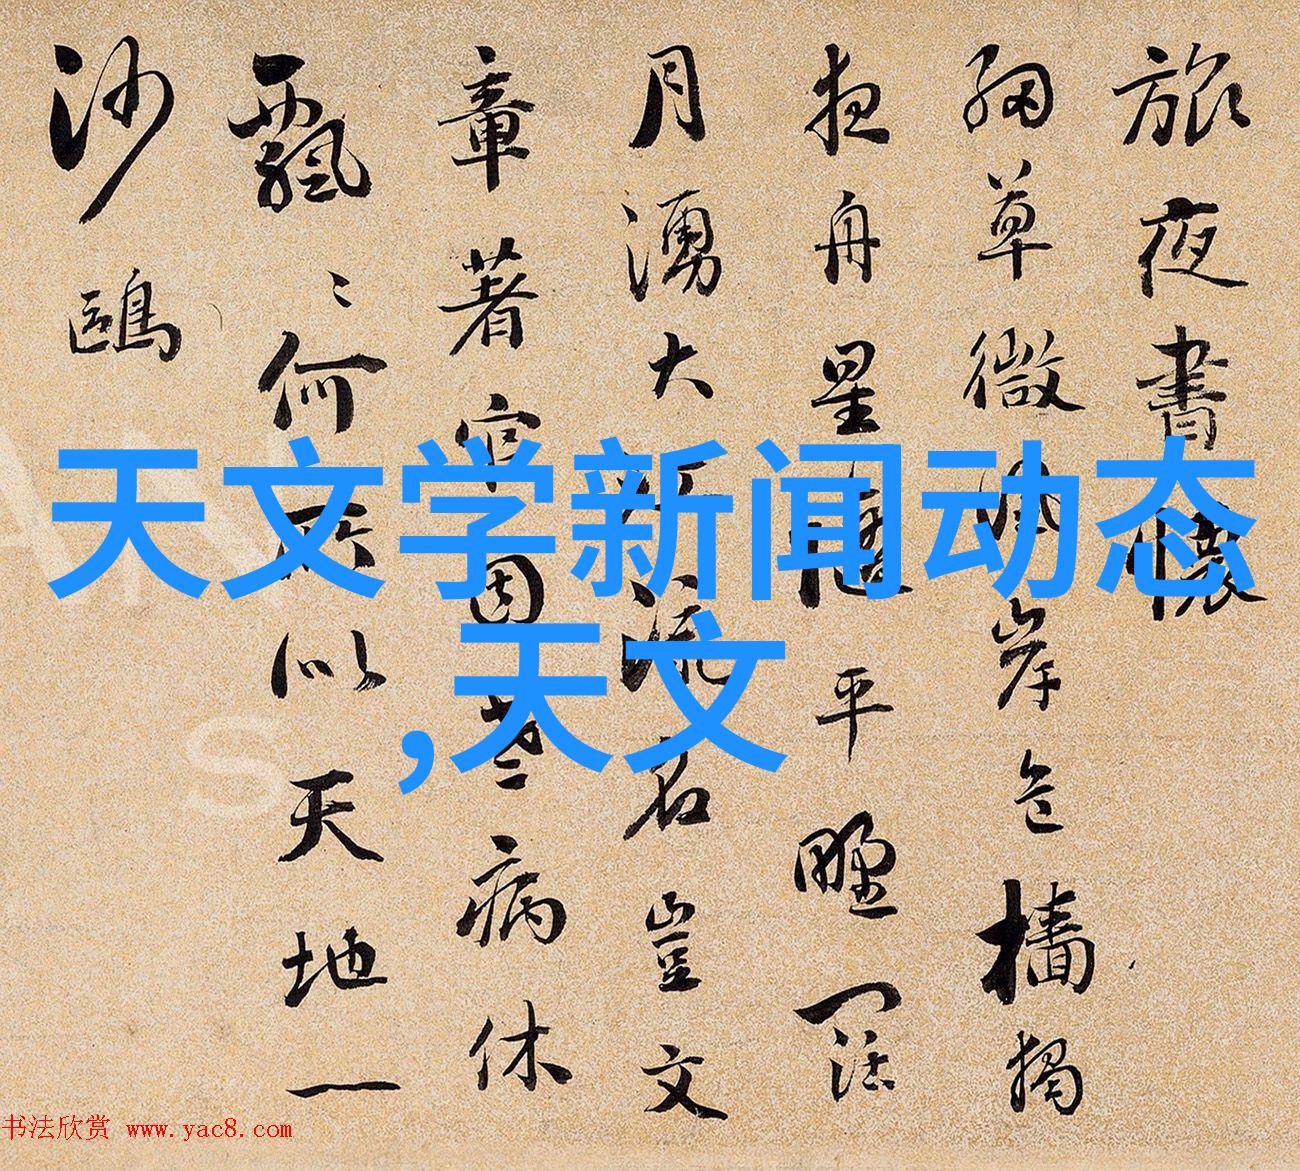 旅夜書懷
細草微風岸危檣獨
夜舟星隨平野闊
月湧大江流名豈文
章著官因老病休
飄〻何所似天地一
沙鷗
天文学新闻动态
,天文
书法欣赏 www.yac8.com